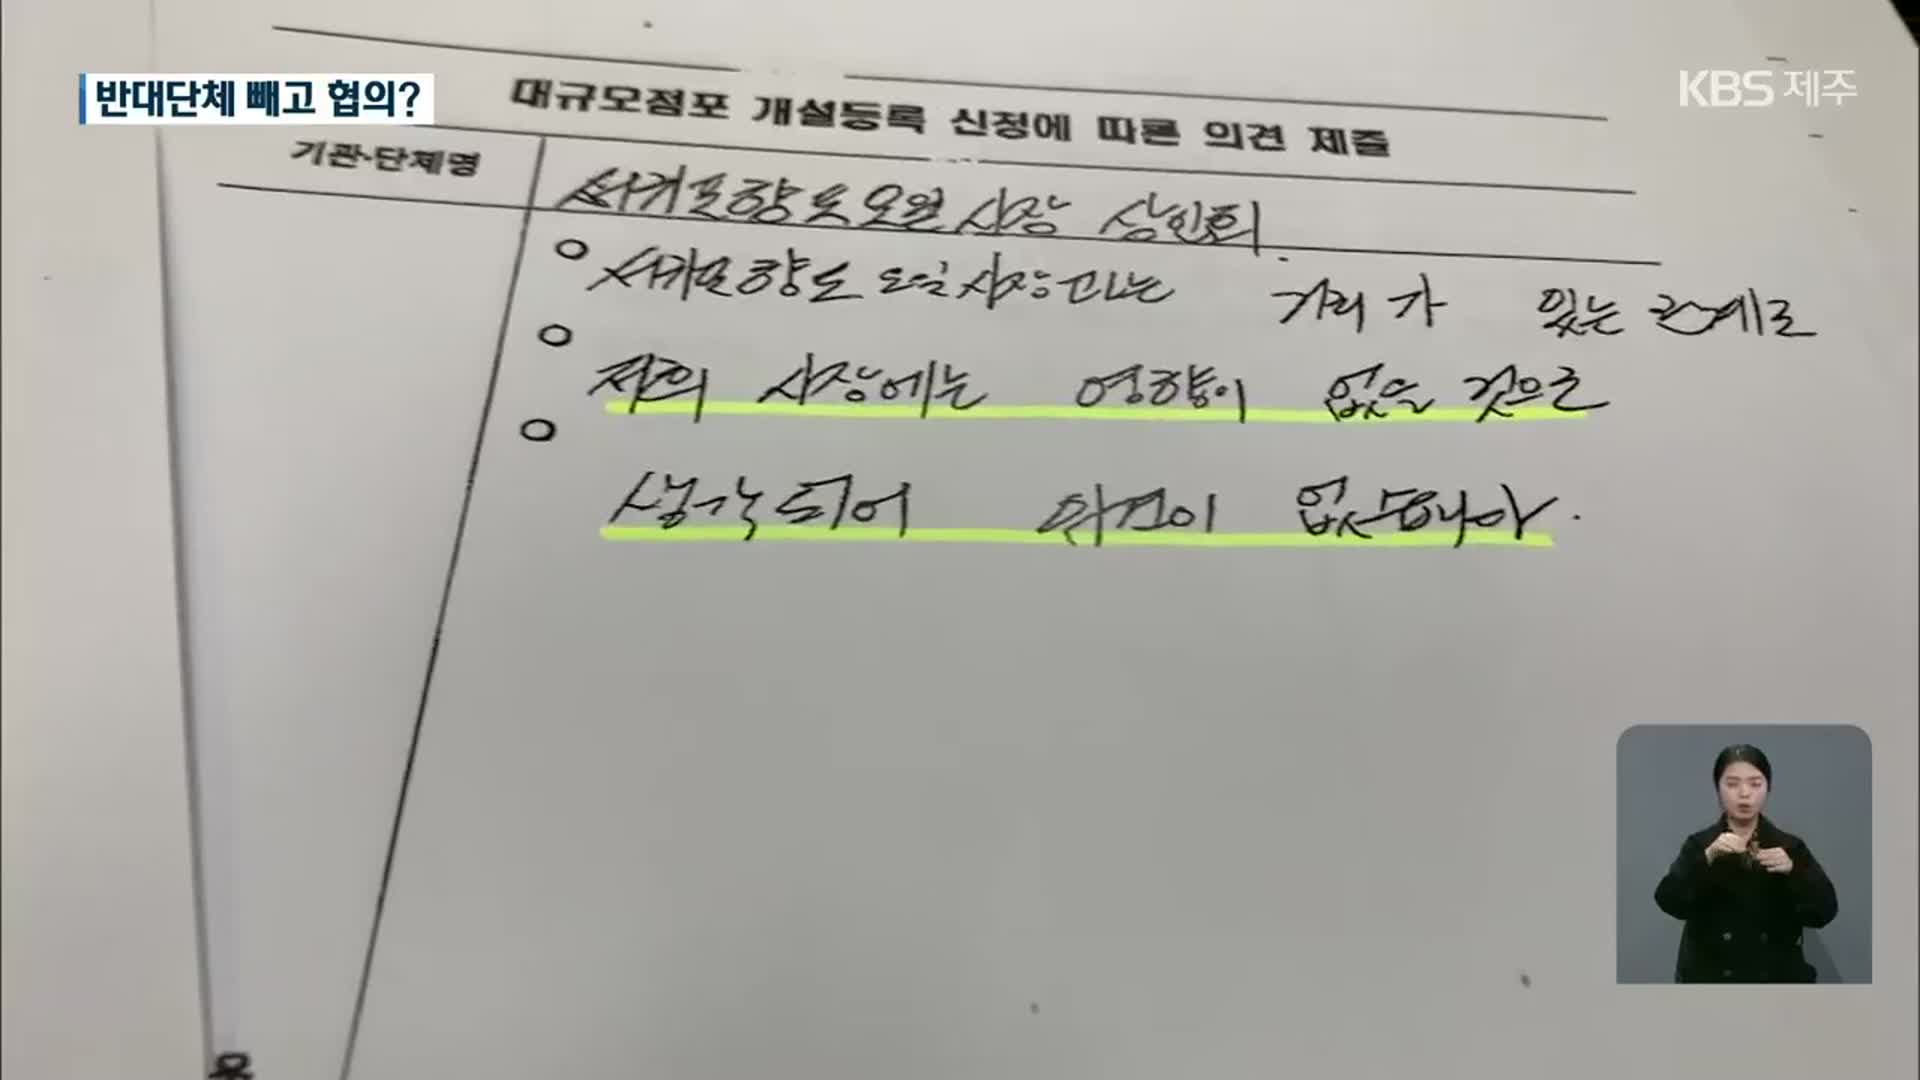 반대단체 빼고 협의?
KBS 제주
대규모점포 개설등록 신청에 따른 의견 제출
기관·단체명
서귀포향토오일시장 상인회.
서귀포향토오일시장과는 거리가 있는 관계로
저희 시장에는 영향이 없을 것으로
생각되어 의견이 없습니다.